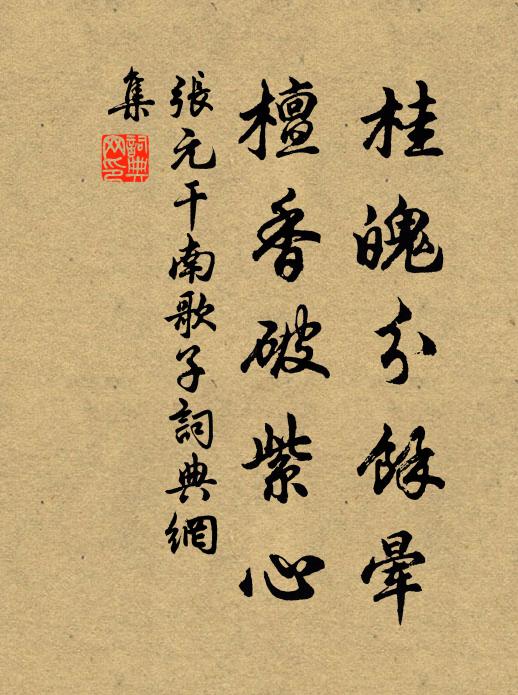 桂魄分餘暈
檀香破紫心
張元干南歌子詞典網
集
詞典網印